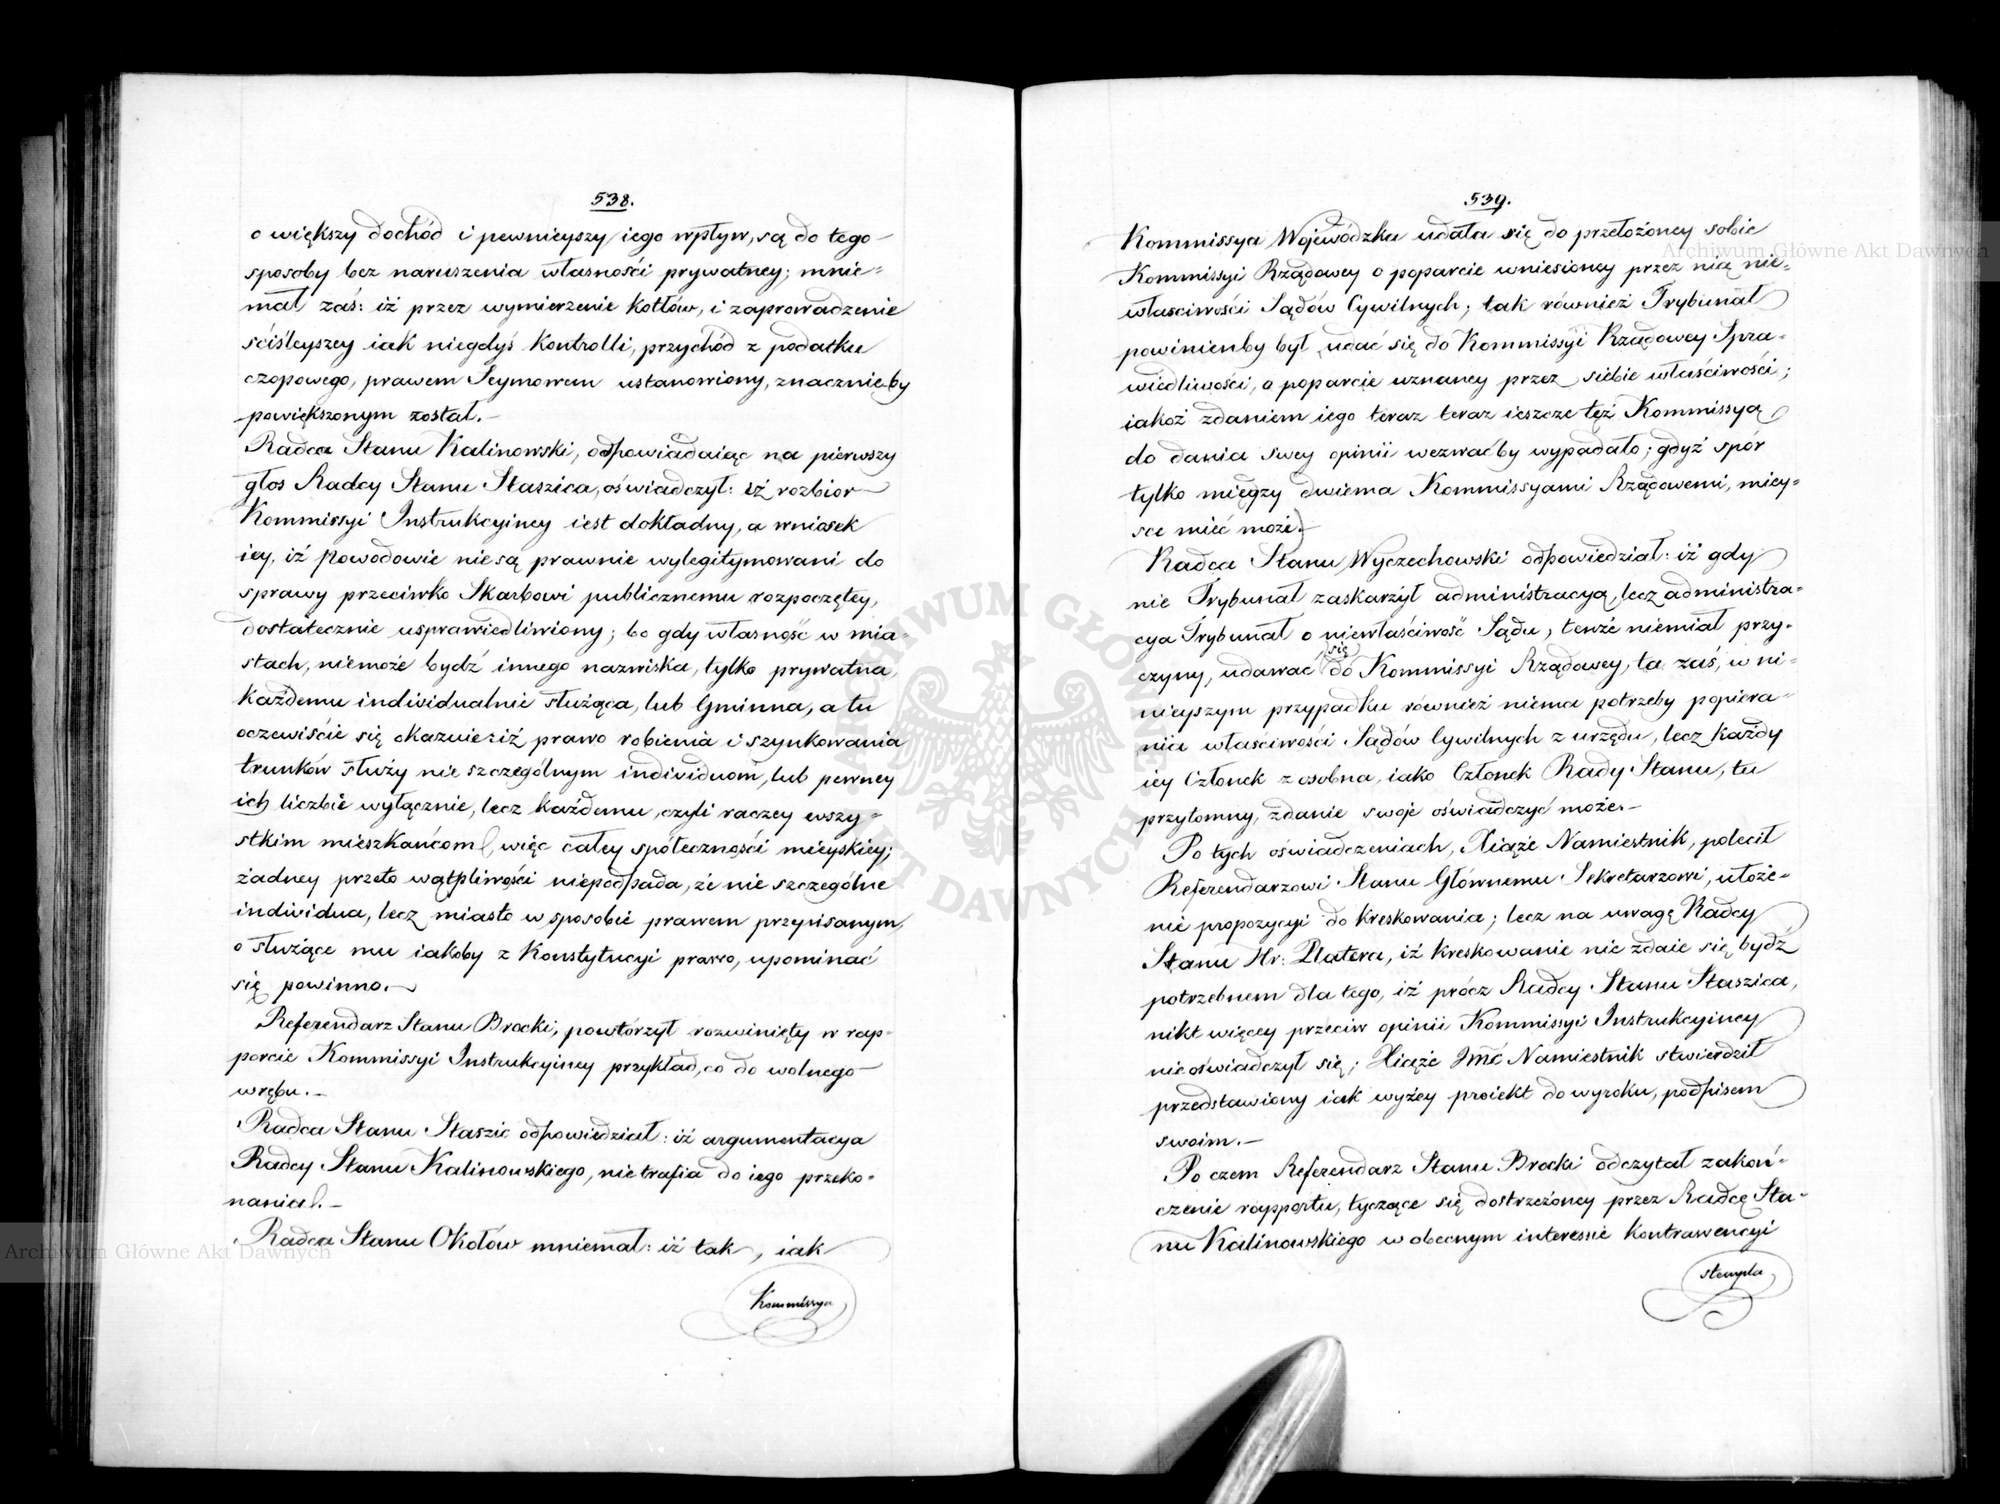 538.
o większy dochód i pewnieyszy iego wpływ, są do tego
sposoby bez naruszenia własności prywatney; mnie-
mał zaś: iż przez wymierzenie kotłów, i zaprowadzenie
ściśleyszey iak niegdyś kontrolli, przychód z podatku
czopowego, prawem Seymowem ustanowiony, znacznieby
powiększonym został.—
Radca Stanu Kalinowski, odpowiadaiąc na pierwszy
głos Radcy Stanu Staszica, oświadczył: iż rozbior
Kommissyi Instrukcyiney iest dokładny, a wniosek
iey, iż Powodowie nie są prawnie wylegitymowani do
sprawy przeciwko Skarbowi publicznemu rozpoczętey,
dostatecznie usprawiedliwiony; bo gdy własność w mia-
stach, niemoże bydź innego nazwiska, tylko prywatna,
każdemu individualnie służąca, lub Gminna, a tu
oczewiście się okazuie: iż prawo robienia i szynkowania
trunków służy nie szczególnym individuom, lub pewney
ich liczbie wyłącznie, lecz każdemu, czyli raczey wszy-
stkim mieszkańcom, więc całey społeczności mieyskiey;
żadney przeto wątpliwości niepodpada, że nie szczególne
individua, lecz miasto w sposobie prawem przepisanym,
o służące mu iakoby z Konstytucyi prawo, upominać
się powinno.—
Referendarz Stanu Brocki, powtórzył rozwinięty w rap-
porcie Kommissyi Instrukcyiney przykład, co do wolnego
wrębu.—
Radca Stanu Staszic odpowiedział: iż argumentacya
Radcy Stanu Kalinowskiego, nie trafia do iego przeko-
nania.—
Radca Stanu Okołów mniemał: iż tak, iak
Kommissya
539.
Kommissya Wojewódzka udała się do przełożoney sobie
Kommissyi Rządowey o poparcie wniesioney przez nią nie-
właściwości Sądów Cywilnych; tak również Trybunał
powinienby był udać się do Kommissyi Rządowey Spra-
wiedliwości, o poparcie uznaney przez siebie właściwości;
iakoż zdaniem iego teraz teraz ieszcze też Kommissyą
do dania swey opinii wezwaćby wypadało; gdyż spor
tylko między dwiema Kommissyami Rządowemi, miey-
sce mieć może.—
Radca Stanu Wyczechowski odpowiedział: iż gdy
nie Trybunał zaskarżył administracyą, lecz administra-
cya Trybunał o niewłaściwość Sądu, tenże niemiał przy-
czyny, udawać się do Kommissyi Rządowey, ta zaś, w ni-
nieyszym przypadku również niema potrzeby popiera-
nia właściwości Sądów Cywilnych z urzędu, lecz każdy
iey Członek z osobna, iako Członek Rady Stanu, tu
przytomny, zdanie swoje oświadczyć może.—
Po tych oświadczeniach, Xiąże Namiestnik, polecił
Referendarzowi Stanu Głównemu Sekretarzowi, ułoże-
nie propozycyi do kreskowania; lecz na uwagę Radcy
Stanu Hr: Platera, iż kreskowanie nie zdaie się bydź
potrzebnem dla tego, iż prócz Radcy Stanu Staszica,
nikt więcey przeciw opinii Kommissyi Instrukcyiney
nieoświadczył się; Xiąże Jmć Namiestnik stwierdził
przedstawiony iak wyżey proiekt do wyroku, podpisem
swoim.—
Po czem Referendarz Stanu Brocki odczytał zakoń-
czenie rapportu, tyczące się dostrzeżoney przez Radcę Sta-
nu Kalinowskiego w obecnym interessie kontrawencyi
stempla
Archiwum Główne Akt Dawnych
Archiwum Główne Akt Dawnych
ARCHIWUM GŁÓWNE AKT DAWNYCH